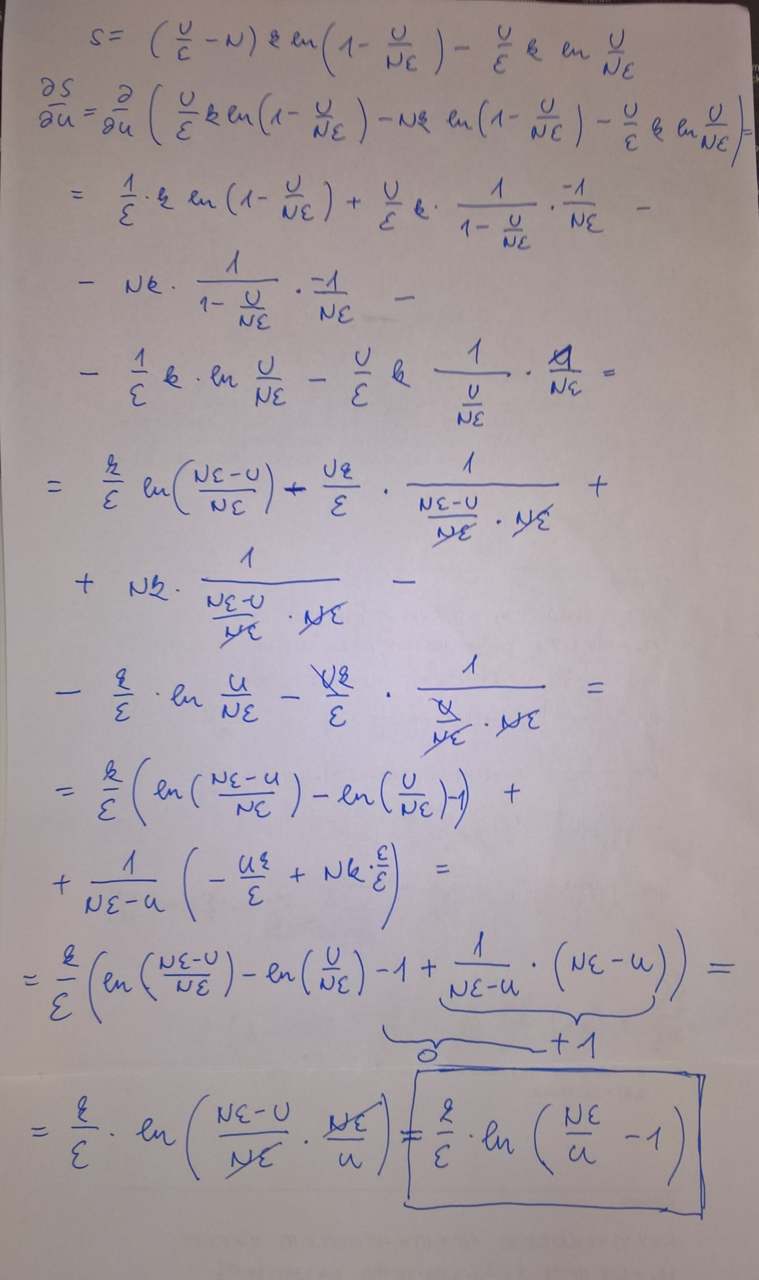 S = (U/ε - N) k ln(1 - U/Nε) - U/ε k ln U/Nε
∂S/∂U = ∂/∂U (U/ε k ln(1 - U/Nε) - Nk ln(1 - U/Nε) - U/ε k ln U/Nε) =
= 1/ε · k ln(1 - U/Nε) + U/ε k · 1/(1 - U/Nε) · -1/Nε -
- Nk · 1/(1 - U/Nε) · -1/Nε -
- 1/ε k · ln U/Nε - U/ε k 1/(U/Nε) · 1/Nε =
= k/ε ln((Nε-U)/Nε) - Uk/ε · 1/((Nε-U)/Nε · Nε) +
+ Nk · 1/((Nε-U)/Nε · Nε) -
- k/ε · ln U/Nε - Uk/ε · 1/(U/Nε · Nε) =
= k/ε (ln((Nε-U)/Nε) - ln(U/Nε) - 1) +
+ 1/(Nε-U) (- Uk/ε + Nk · ε/ε) =
= k/ε (ln((Nε-U)/Nε) - ln(U/Nε) - 1 + 1/(Nε-U) · (Nε-U)) =
0 +1
= k/ε · ln((Nε-U)/Nε · Nε/U) = k/ε · ln(Nε/U - 1)